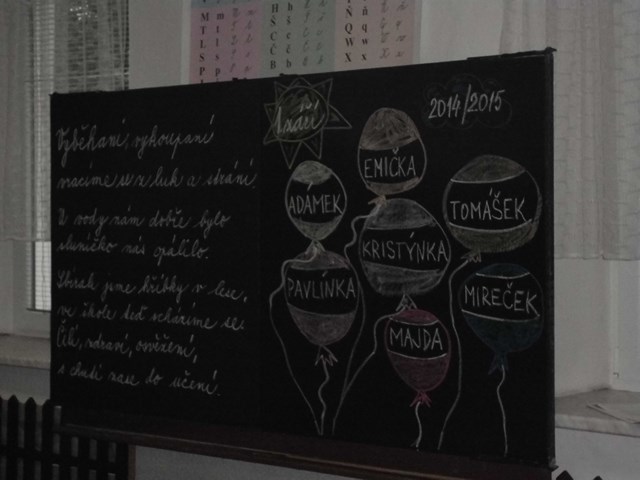 Vyběhaní, vykoupaní
vracíme se z luk a strání.
U vody nám dobře bylo
sluníčko nás opálilo.
Sbírali jsme hříbky v lese,
ve škole teď scházíme se.
Čilí, zdraví, osvěžení,
s chutí zase do učení.
září
2014/2015
EMIČKA
ADÁMEK
TOMÁŠEK
KRISTÝNKA
PAVLÍNKA
MIREČEK
MAJDA
M
T
L
S
P
H
Š
C
Č
B
Ň
Q
W
X